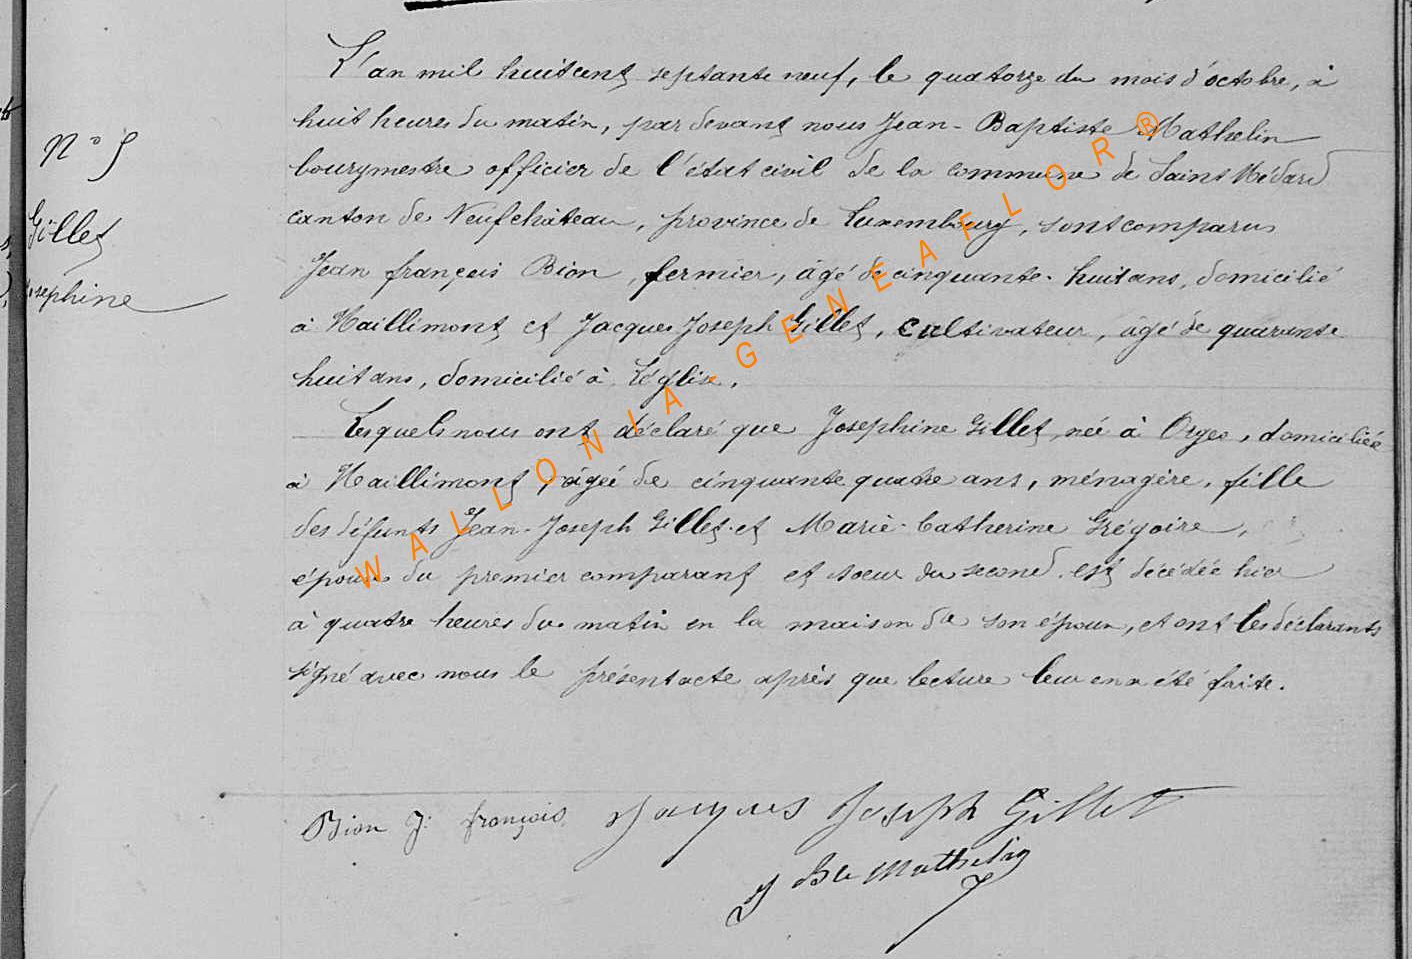 L'an mil huit cent septante neuf, le quatorze du mois d'octobre, à
huit heures du matin, par devant nous Jean-Baptiste Mathelin
bourgmestre officier de l'état civil de la commune de Saint Médard
canton de Neufchâteau, province de Luxembourg, sont comparus
Jean françois Bion, fermier, âgé de cinquante-huit ans, domicilié
à Maillimont et Jacques Joseph Gillet, cultivateur, âgé de quarante
huit ans, domicilié à Léglise.
Lesquels nous ont déclaré que Josephine Gillet, née à Orgeo, domiciliée
à Maillimont, âgée de cinquante quatre ans, ménagère, fille
des défunts Jean-Joseph Gillet et Marie-Catherine Grégoire,
épouse du premier comparant et soeur du second est décédée hier
à quatre heures du matin en la maison de son époux, et ont les déclarants
signé avec nous le présent acte après que lecture leur en a été faite.
N° 5
Gillet
Josephine
Bion J. françois Jacques Joseph Gillet
J Bte Mathelin
WALLONIA-GENEAFLOR®